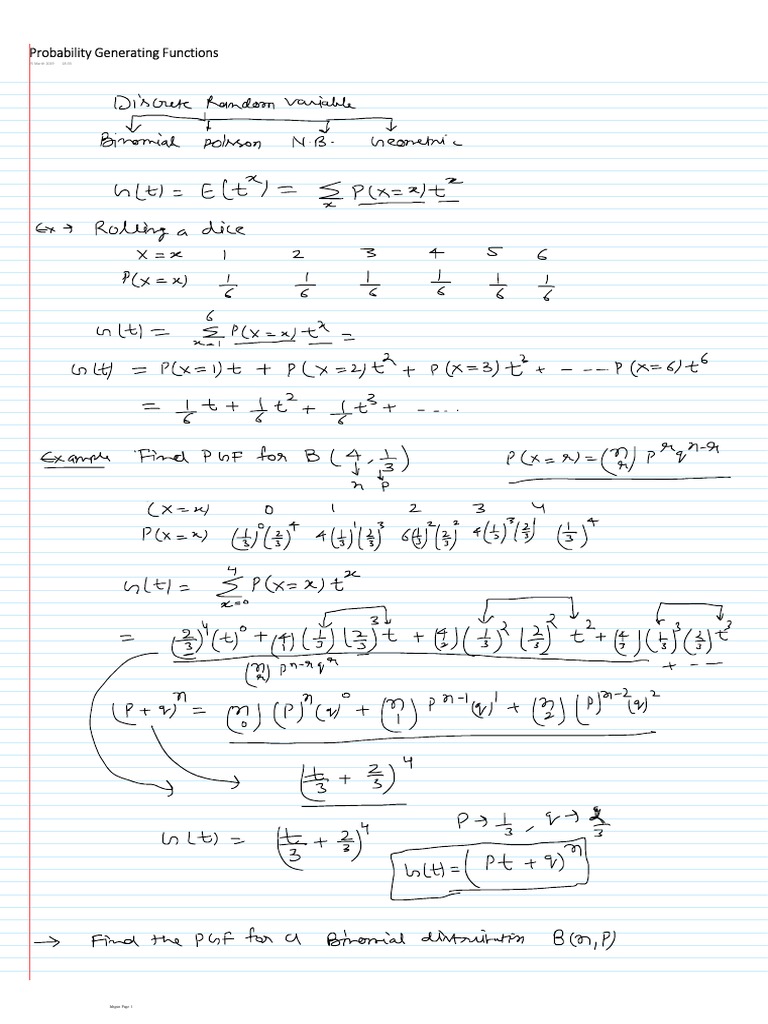 Probability Generating Functions
Discrete Random variable
Binomial poisson N.B. Geometric
G(t) = E(t^x) = Σ_x P(X=x) t^x
Ex → Rolling a dice
X = x 1 2 3 4 5 6
P(X=x) 1/6 1/6 1/6 1/6 1/6 1/6
G(t) = Σ_{x=1}^{6} P(X=x) t^x =
G(t) = P(X=1)t + P(X=2)t^2 + P(X=3)t^2 + - --- P(X=6)t^6
= 1/6 t + 1/6 t^2 + 1/6 t^3 + - - - -
Example Find PGF for B(4, 1/3) P(X=r) = (n r) p^r q^{n-r}
n p
(X=x) 0 1 2 3 4
P(X=x) (1/3)^0 (2/3)^4 4(1/3)^1 (2/3)^3 6(1/3)^2 (2/3)^2 4(1/3)^3 (2/3)^1 (1/3)^4
G(t) = Σ_{x=0}^{4} P(X=x) t^x
= (2/3)^4 (t)^0 + (4 1)(1/3)(2/3)^3 t + (4 2)(1/3)^2 (2/3)^2 t^2 + (4 3)(1/3)^3 (2/3) t^3
+ - - -
(n r) p^{n-r} q^r
(P + q)^n = (n 0)(P)^n (q)^0 + (n 1) P^{n-1} (q)^1 + (n 2)(P)^{n-2} (q)^2
(t/3 + 2/3)^4
P → 1/3, q → 2/3
G(t) = (t/3 + 2/3)^4
G(t) = (Pt + q)^n
→ Find the PGF for a Binomial distribution B(n, P)